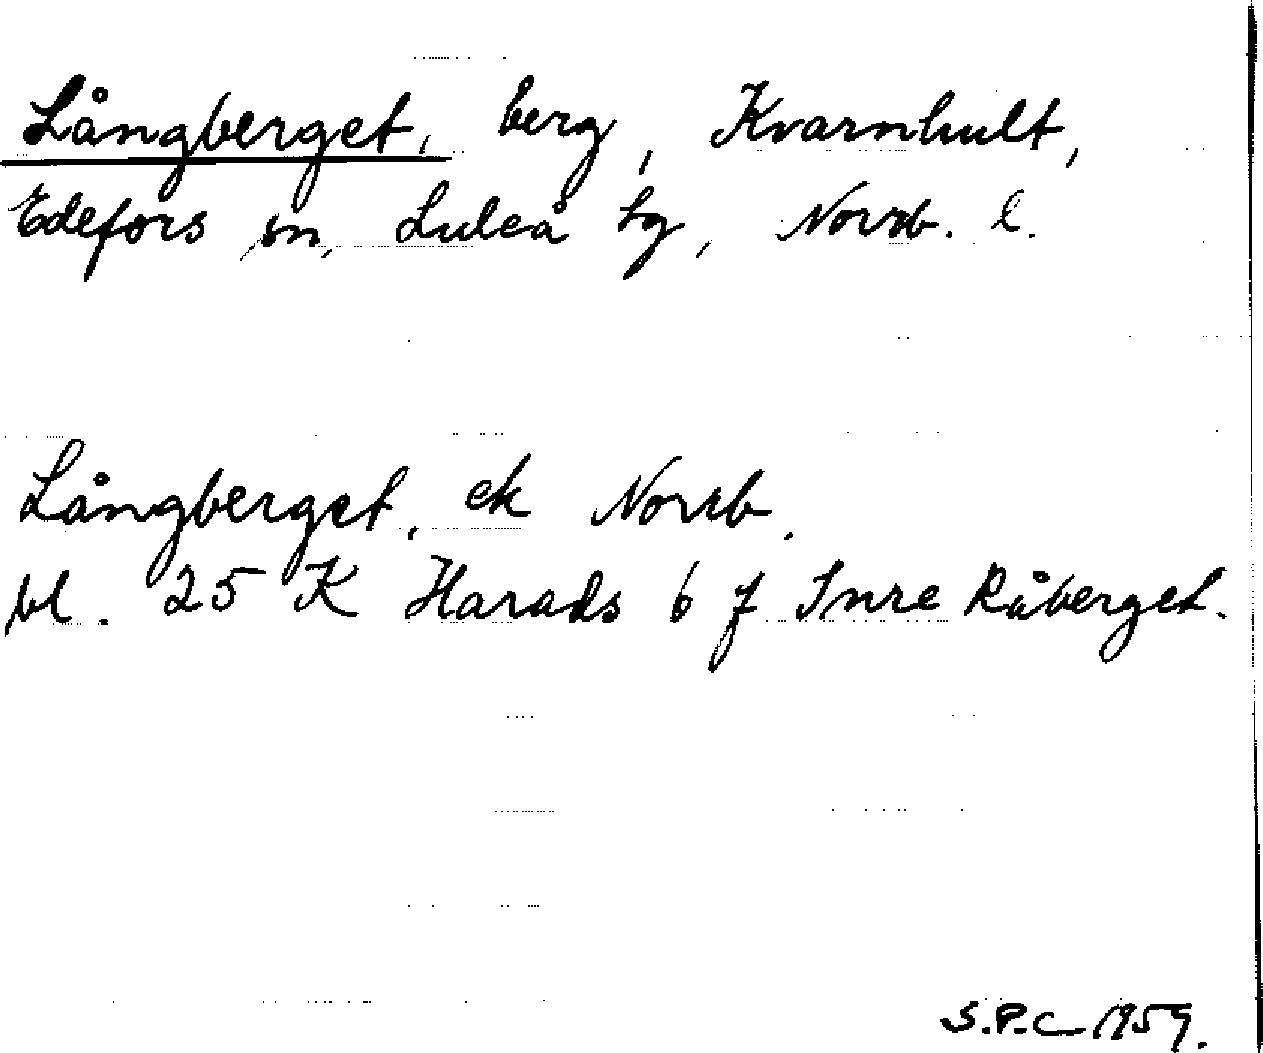 Långberget, berg, Kvarnhult,
Edefors sn, Luleå tg, Norrb. l.
Långberget, ek Norrb.
bl. 25 K Harads 6 f Inre Råberget.
S.P.C 1959.